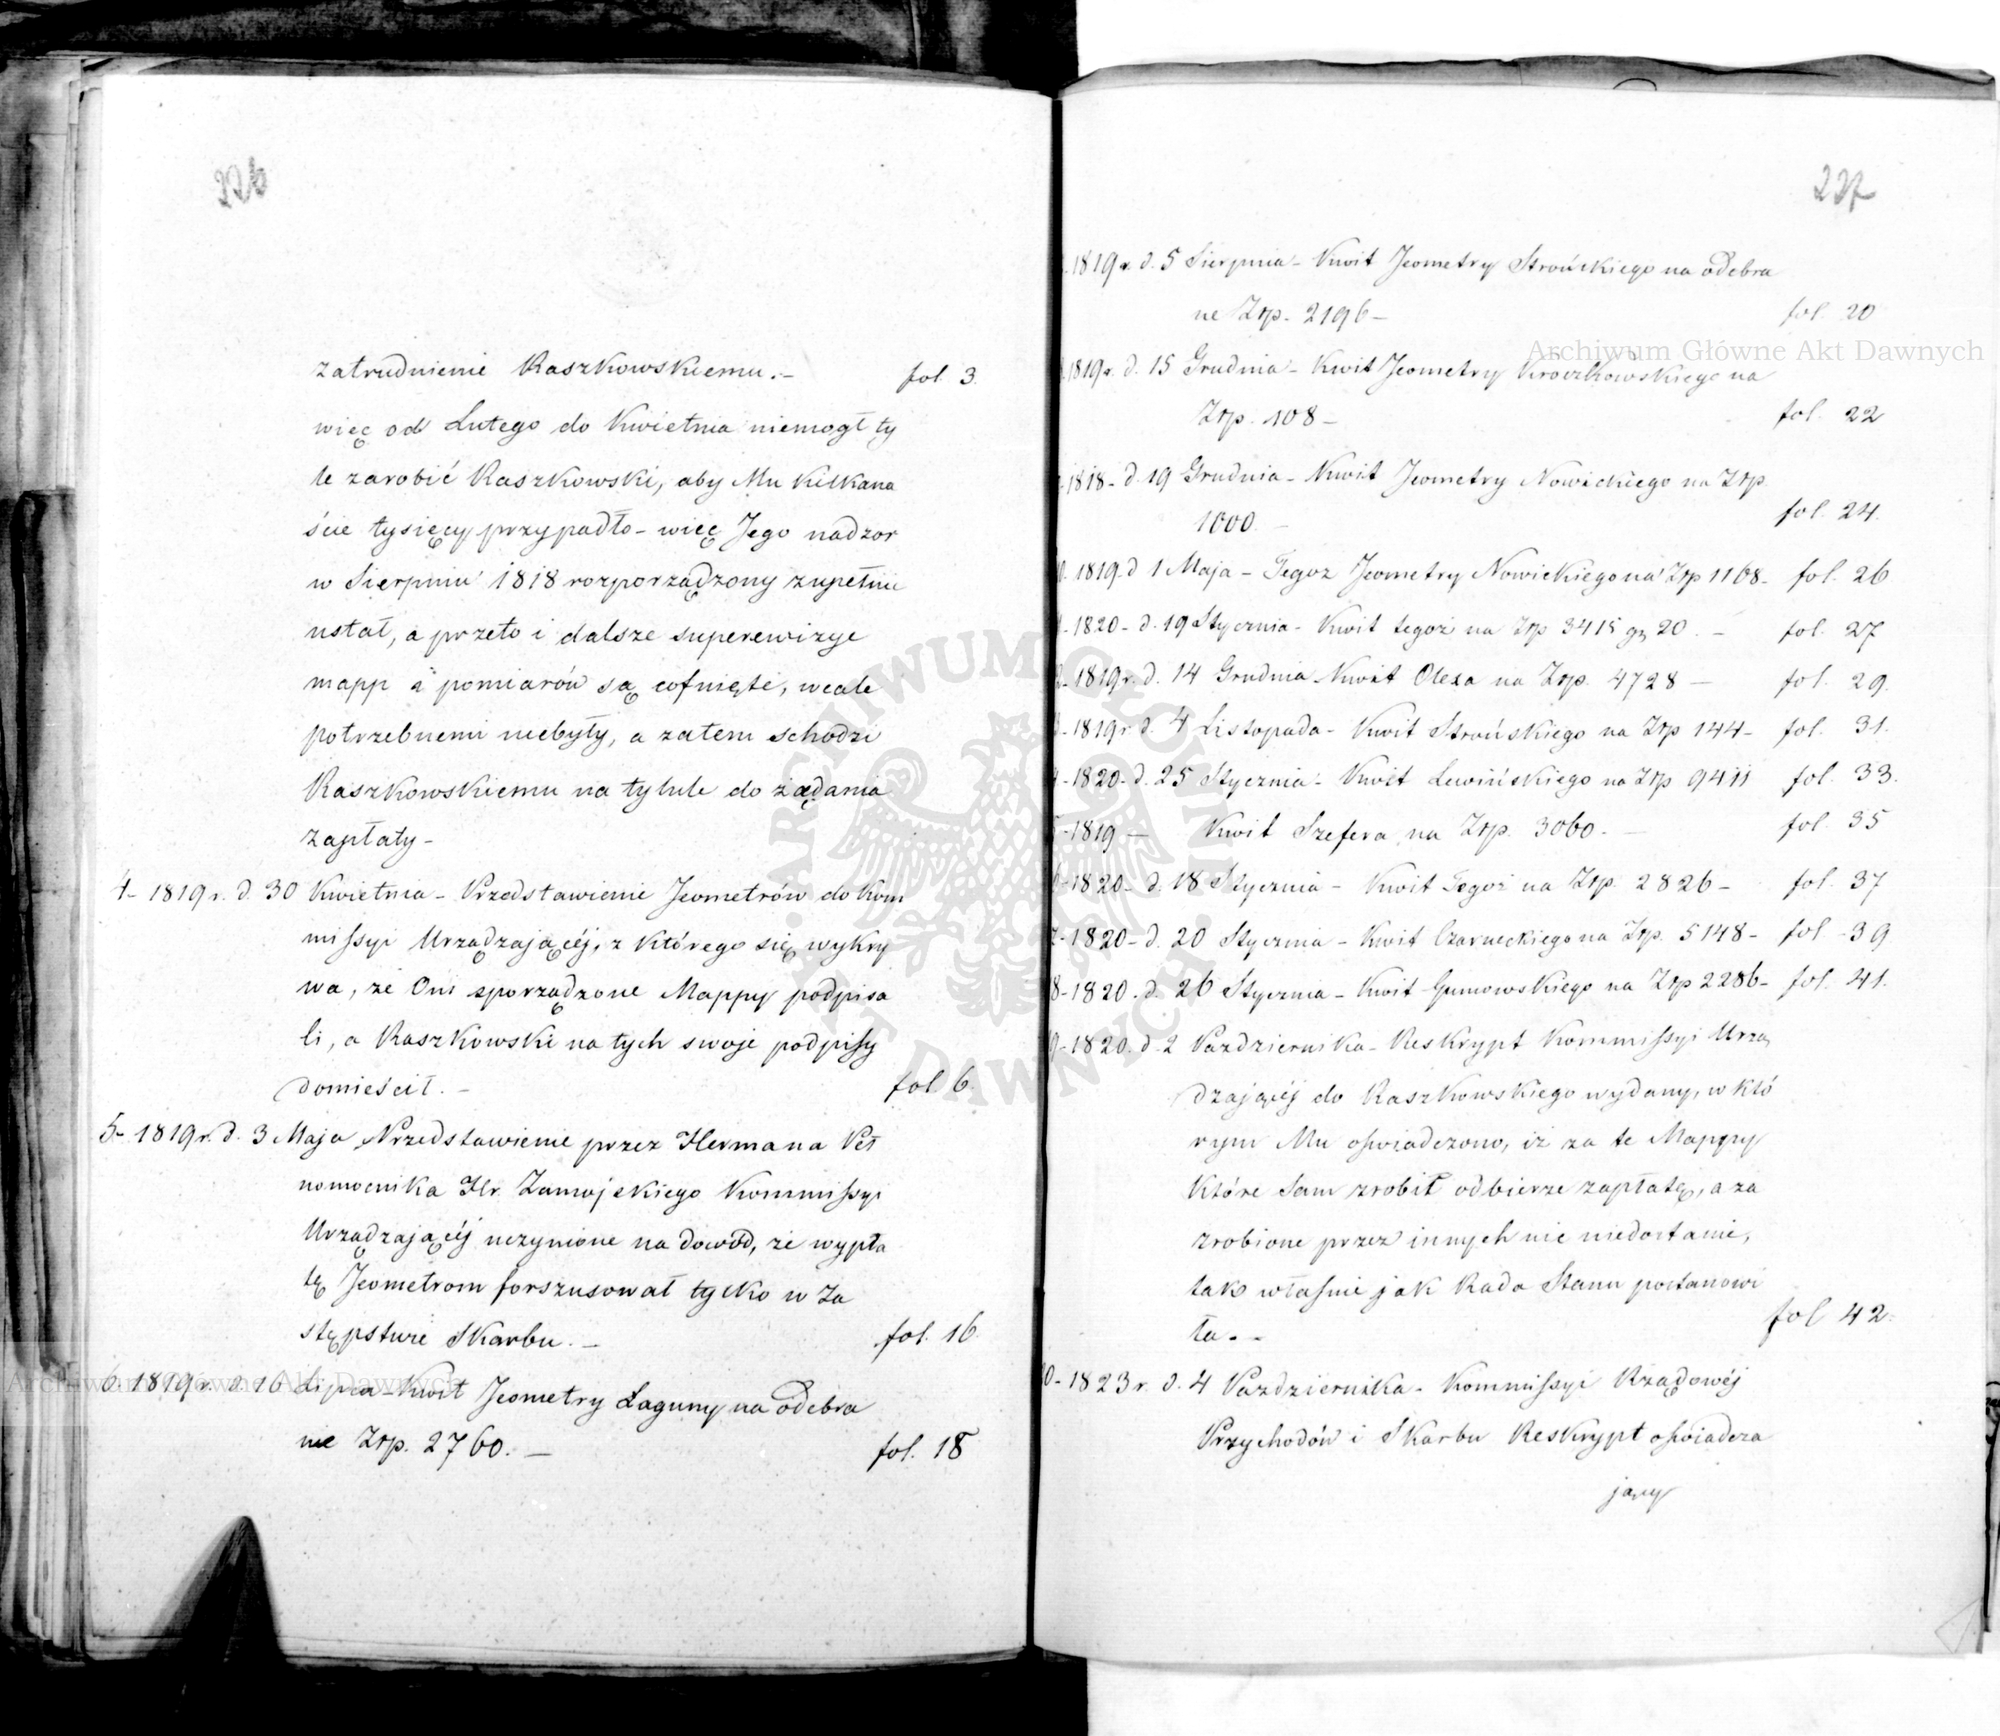 226
zatrudnienie Raszkowskiemu.- fol. 3.
więc od Lutego do Kwietnia niemogł ty
le zarobić Raszkowski, aby Mu kilkana
ście tysięcy przypadło - więc Jego nadzor
w Sierpniu 1818 rozporządzony zupełnie
ustał, a przeto i dalsze superewizye
mapp i pomiarów są cofnięte, wcale
potrzebnemi niebyły, a zatem schodzi
Raszkowskiemu na tytule do żądania
zapłaty -
4- 1819 r. d. 30 Kwietnia - Przedstawienie Jeometrów do Kom
missyi Urządzającéj, z którego się wykry
wa, że Oni sporządzone Mappy podpisa
li, a Raszkowski na tych swoje podpisy
domieścił. - fol. 6.
5- 1819 r. d. 3 Maja Przedstawienie przez Hermana Peł
nomocnika Hr. Zamojskiego Kommissyi
Urządzającéj uczynione na dowód, że wypła
tę Jeometrom forszusował tylko w Za
stępstwie Skarbu. - fol. 16.
6. 1819 r. d. 16 Lipca - Kwit Jeometry Laguny na odebra
ne Złp. 2760. - fol. 18
227
1819 r. d. 5 Sierpnia - Kwit Jeometry Strońskiego na odebra
ne Złp. 2196 - fol. 20
1819 r. d. 15 Grudnia - Kwit Jeometry Kroczkowskiego na
Złp. 108 - fol. 22
1818 - d. 19 Grudnia - Kwit Jeometry Nowickiego na Złp.
1000. - fol. 24.
0. 1819 d 1 Maja - Tegoż Jeometry Nowickiego na Złp 1168 - fol. 26
- 1820 - d. 19 Stycznia - Kwit tegoż na Złp 3415 gr 20. - fol. 27
2- 1819 r. d. 14 Grudnia Kwit Olexa na Złp. 4728 - fol. 29.
3- 1819 r. d. 4 Listopada - Kwit Strońskiego na Złp 144 - fol. 31.
- 1820 - d. 25 Stycznia - Kwit Lewińskiego na Złp 9411 fol. 33.
- 1819 - Kwit Szefera na Złp. 3060. - fol. 35
- 1820 - d. 18 Stycznia - Kwit Tegoż na Złp. 2826 - fol. 37
- 1820 - d. 20 Stycznia - Kwit Czarneckiego na Złp. 5148 - fol - 39
8- 1820. d. 26 Stycznia - Kwit Gumowskiego na Złp 2286 - fol. 41.
9- 1820. d. 2 Pazdziernika - Reskrypt Kommissyi Urzą
dzającéj do Raszkowskiego wydany, w któ
rym Mu oświadczono, iż za te Mappy
które Sam zrobił odbierze zapłatę, a za
zrobione przez innych nic niedostanie,
tak właśnie jak Rada Stanu postanowi
ła. - fol 42.
0- 1823 r. d. 4 Pazdziernika - Kommissyi Rządowéj
Przychodów i Skarbu Reskrypt oświadcza
jący
Archiwum Główne Akt Dawnych
Archiwum Główne Akt Dawnych
ARCHIWUM GŁÓWNE AKT DAWNYCH